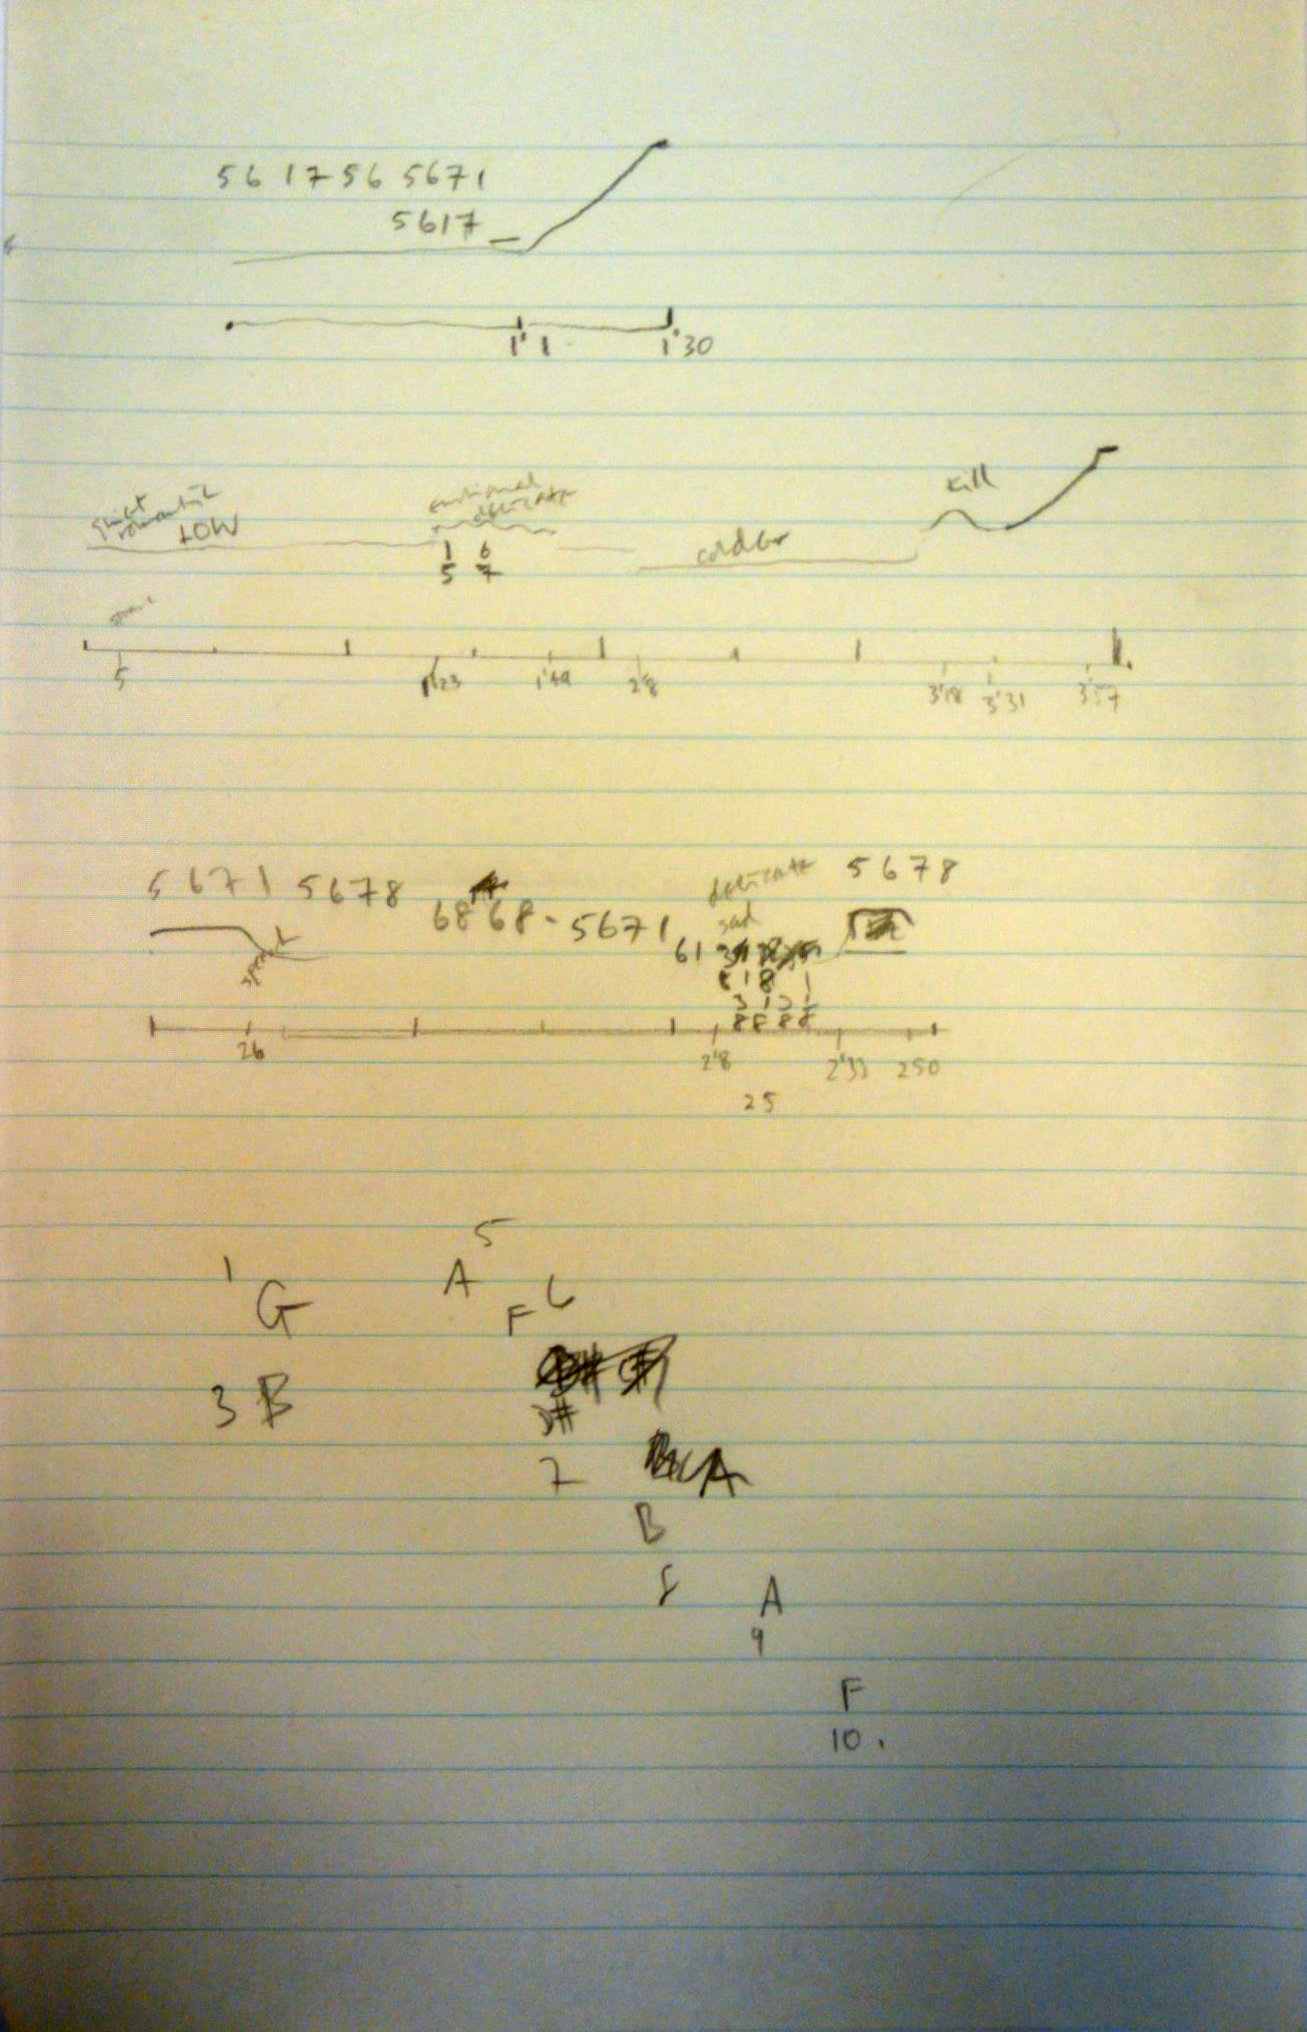 56 17 56 5671
5617
1'1 1'30
quiet
romantic
LOW
emotional
delicate
1 6
5 7
colder
kill
5 1'23 1'49 2'8 3'18 3'31 3'57
5 6 7 1 5678
68 68 - 5671
delicate 5 6 7 8
sad
61
8 1 8 1
3 1 3 1
8 8
26 2'8 2'33 250
25
5
1 A
G F 6
3 B
D#
7 A
B
8 A
9
F
10.